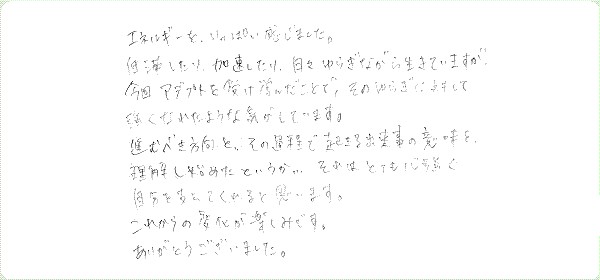 エネルギーを、いっぱい感じました。
停滞したり、加速したり、日々ゆらぎながら生きていますが、
今回アダプトを受け なんだことで、そのゆらぎに対して
強くなれたような気がしています。
進むべき方向と、その過程で起きる出来事の意味を、
理解し始めたというか… それはとても 強く
自分を支えてくれると思います。
これからの変化が楽しみです。
ありがとうございました。